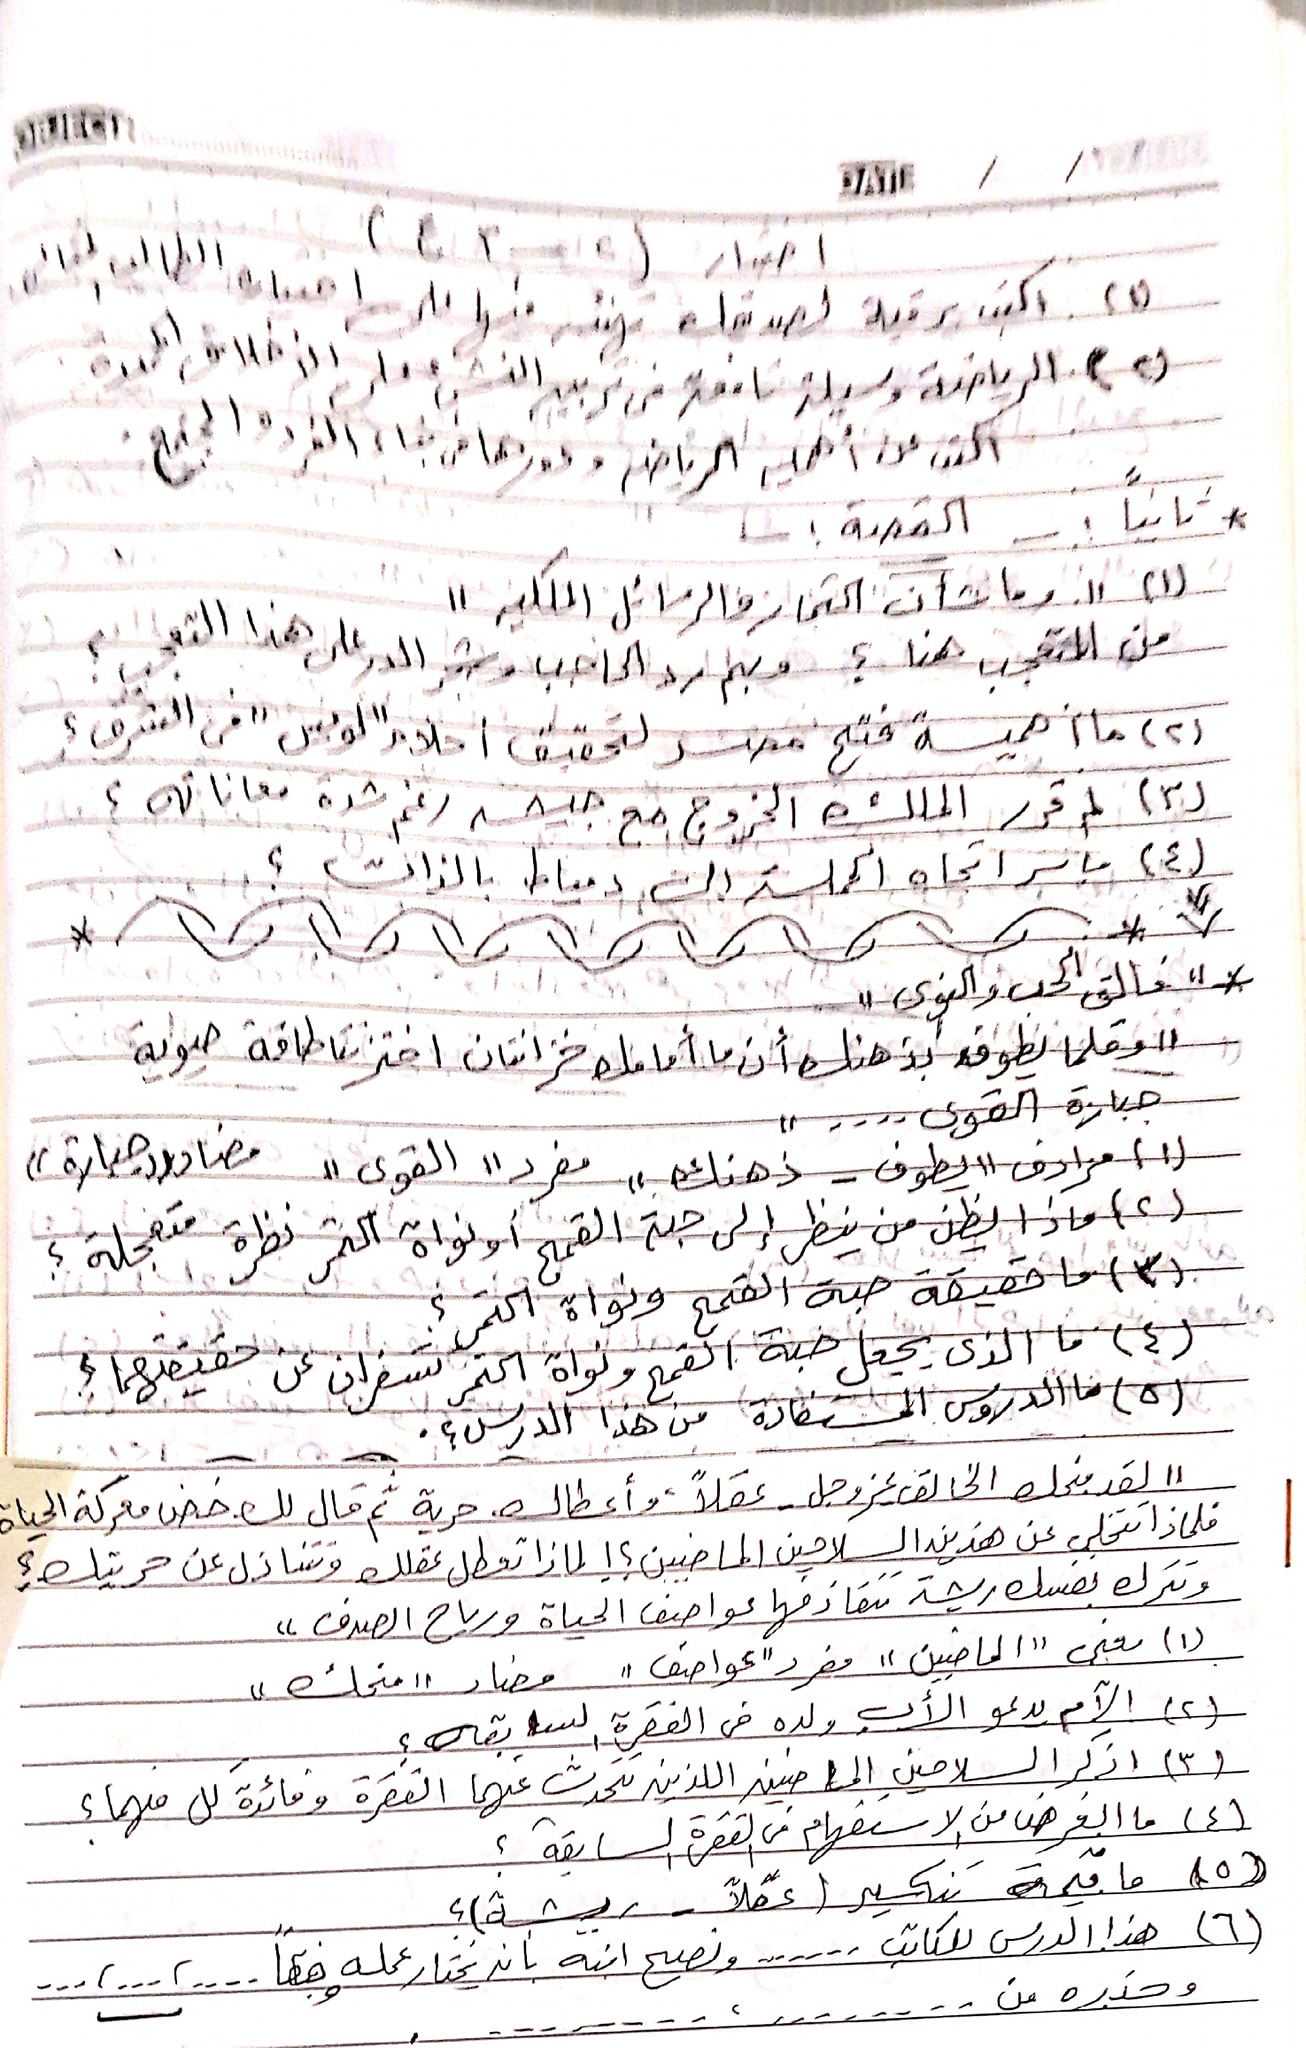 SUBJECT:
DATE / /
(١) اكتب برقية لصديقك تهنئه فيها على الطالب المثالى
(٢) الرياضة وسيلة نافعة فى تربية النشئ على الأخلاق الحميدة
اكتب عن أهمية الرياضة ودورها فى بناء الفرد والمجتمع.
* ثانياً :- القصة :-
(١) " وما شأن التجار والرسائل الملكية "
من المتعجب هنا ؟ وبم رد الحاجب وشجر الدر على هذا التعجب ؟
(٢) ما أهمية فتح مصر لتحقيق أحلام "لويس" فى الشرق ؟
(٣) لم قرر الملك الخروج مع جيشه رغم شدة معاناته ؟
(٤) ما سر اتجاه الحملة إلى دمياط بالذات ؟
* " فالق الحب والنوى "
" وقلما يطوف بذهنك أن ما أمامك خزانتان اختزنتا طاقة حيوية
جبارة القوى ..... "
(١) مرادف " يطوف - ذهنك " مفرد " القوى " مضاد " جبارة "
(٢) ماذا يظن من ينظر إلى حبة القمح أو نواة التمر نظرة متعجلة ؟
(٣) ما حقيقة حبة القمح ونواة التمر ؟
(٤) ما الذى يجعل حبة القمح ونواة التمر تسفران عن حقيقتهما ؟
(٥) ما الدروس المستفادة من هذا الدرس ؟.
" لقد منحك الخالق عز وجل - عقلاً وأعطاك حرية ثم قال لك خض معركة الحياة
فلماذا تتخلى عن هذين السلاحين الماضيين ؟! لماذا تعطل عقلك وتتنازل عن حريتك ؟
وتترك نفسك ريشة تتقاذفها عواصف الحياة ورياح الصدف "
(١) معنى " الماضيين " مفرد " عواصف " مضاد " منحك "
(٢) إلآم يدعو الأب ولده فى الفقرة السابقة ؟
(٣) اذكر السلاحين الماضيين اللذين تتحدث عنهما الفقرة وفائدة كل منهما ؟
(٤) ما الغرض من الاستفهام فى الفقرة السابقة ؟
(٥) ما قيمة تنكسير ( عقلاً - ريشة ) ؟
(٦) هذا الدرس للكاتب ....... ونصيح ابنه بأن يختار عمله وفقاً ..... ، .... ، ....
وحذره من ......... ، ......... .